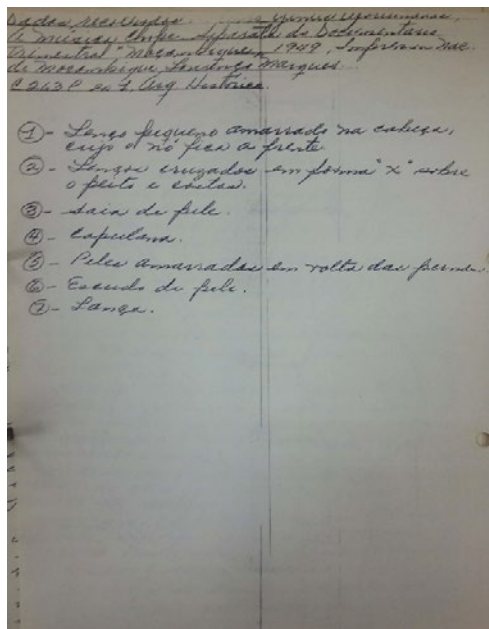 Dados recolhidos
A Música Chope. Separata do Documentário
Trimestral "Moçambique", 1949, Imprensa Nac.
de Moçambique, Lourenço Marques.
C 263 P Arq. Histórico.
① - Lenço pequeno amarrado na cabeça,
cujo o nó fica a frente.
② - Lenços cruzados em forma "X" sobre
o peito e costas.
③ - Saia de pele.
④ - Capulana.
⑤ - Peles amarradas em volta das pernas.
⑥ - Escudo de pele.
⑦ - Lança.